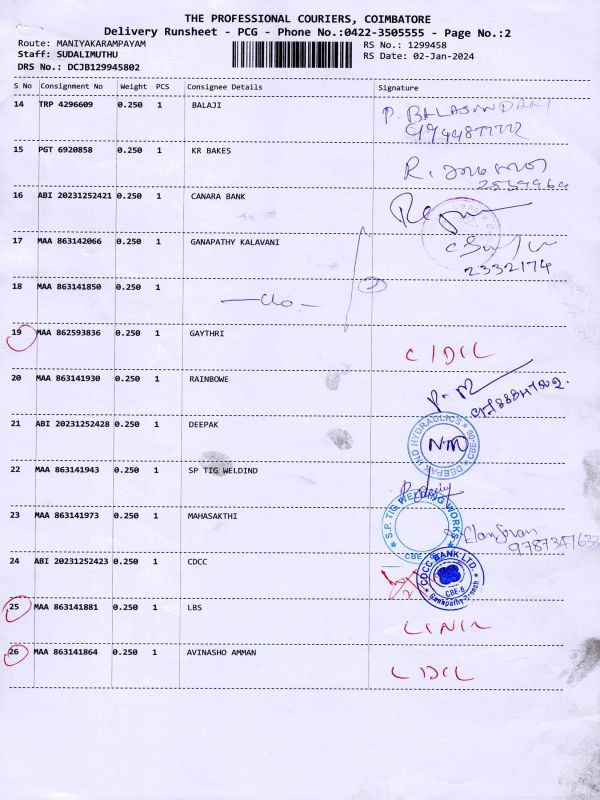 THE PROFESSIONAL COURIERS, COIMBATORE
Delivery Runsheet - PCG - Phone No.:0422-3505555 - Page No.:2
Route: MANIYAKARAMPAYAM RS No.: 1299458
Staff: SUDALIMUTHU RS Date: 02-Jan-2024
DRS No.: DCJB129945802
S No Consignment No Weight PCS Consignee Details Signature
14 TRP 4296609 0.250 1 BALAJI
P. BALASUNDARI
15 PGT 6920858 0.250 1 KR BAKES
R.
16 ABI 20231252421 0.250 1 CANARA BANK
17 MAA 863142066 0.250 1 GANAPATHY KALAVANI
2332174
18 MAA 863141850 0.250 1
—do—
19 MAA 862593836 0.250 1 GAYTHRI
C/DCL
20 MAA 863141930 0.250 1 RAINBOWE
21 ABI 20231252428 0.250 1 DEEPAK
DEEPAK IND HYDRAULICS CBE-06
N.M
22 MAA 863141943 0.250 1 SP TIG WELDIND
S.P. TIG WELDING WORKS
CBE
23 MAA 863141973 0.250 1 MAHASAKTHI
24 ABI 20231252423 0.250 1 CDCC
CDCC BANK LTD.
CBE-6
Ganapathy Branch
25 MAA 863141881 0.250 1 LBS
26 MAA 863141864 0.250 1 AVINASHO AMMAN